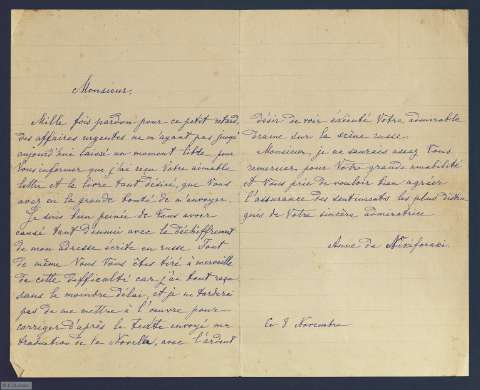 Monsieur,
Mille fois pardon pour ce petit retard,
des affaires urgentes ne m'ayant pas jusqu'
aujourd'hui laissé un moment libre pour
Vous informer que j'ai reçu Votre aimable
lettre et le livre tant désiré, que Vous
avez eu la grande bonté de m'envoyer.
Je suis bien peinée de Vous avoir
causé tant d'ennui avec le déchiffrement
de mon adresse écrite en russe. Tout
de même Vous Vous êtes tiré à merveille
de cette difficulté car j'ai tout reçu
sans le moindre délai, et je ne tarderai
pas de me mettre à l'œuvre pour
corriger d'après le texte envoyé ma
traduction de la Novella, avec l'ardent
désir de voir exécuté Votre admirable
drame sur la scène russe.
Monsieur, je ne saurais assez Vous
remercier pour Votre grande amabilité
et Vous prie de vouloir bien agréer
l'assurance des sentiments les plus distin
gués de Votre sincère admiratrice
Anne de
Ce 8 Novembre